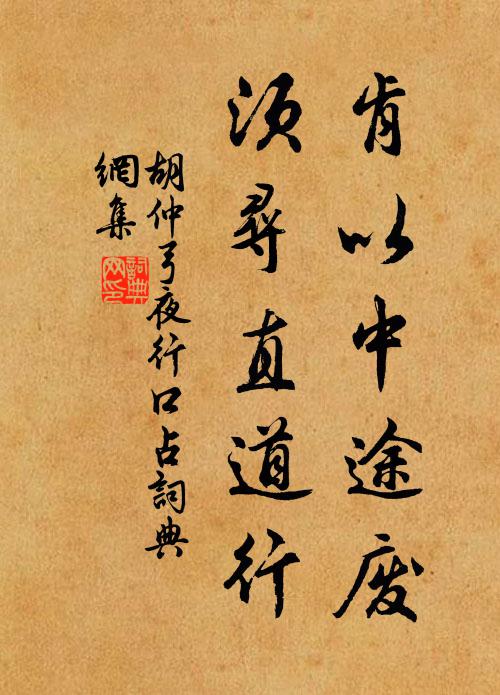 肯以中途废
须寻直道行
胡仲弓夜行口占詞典
網集
詞典網印